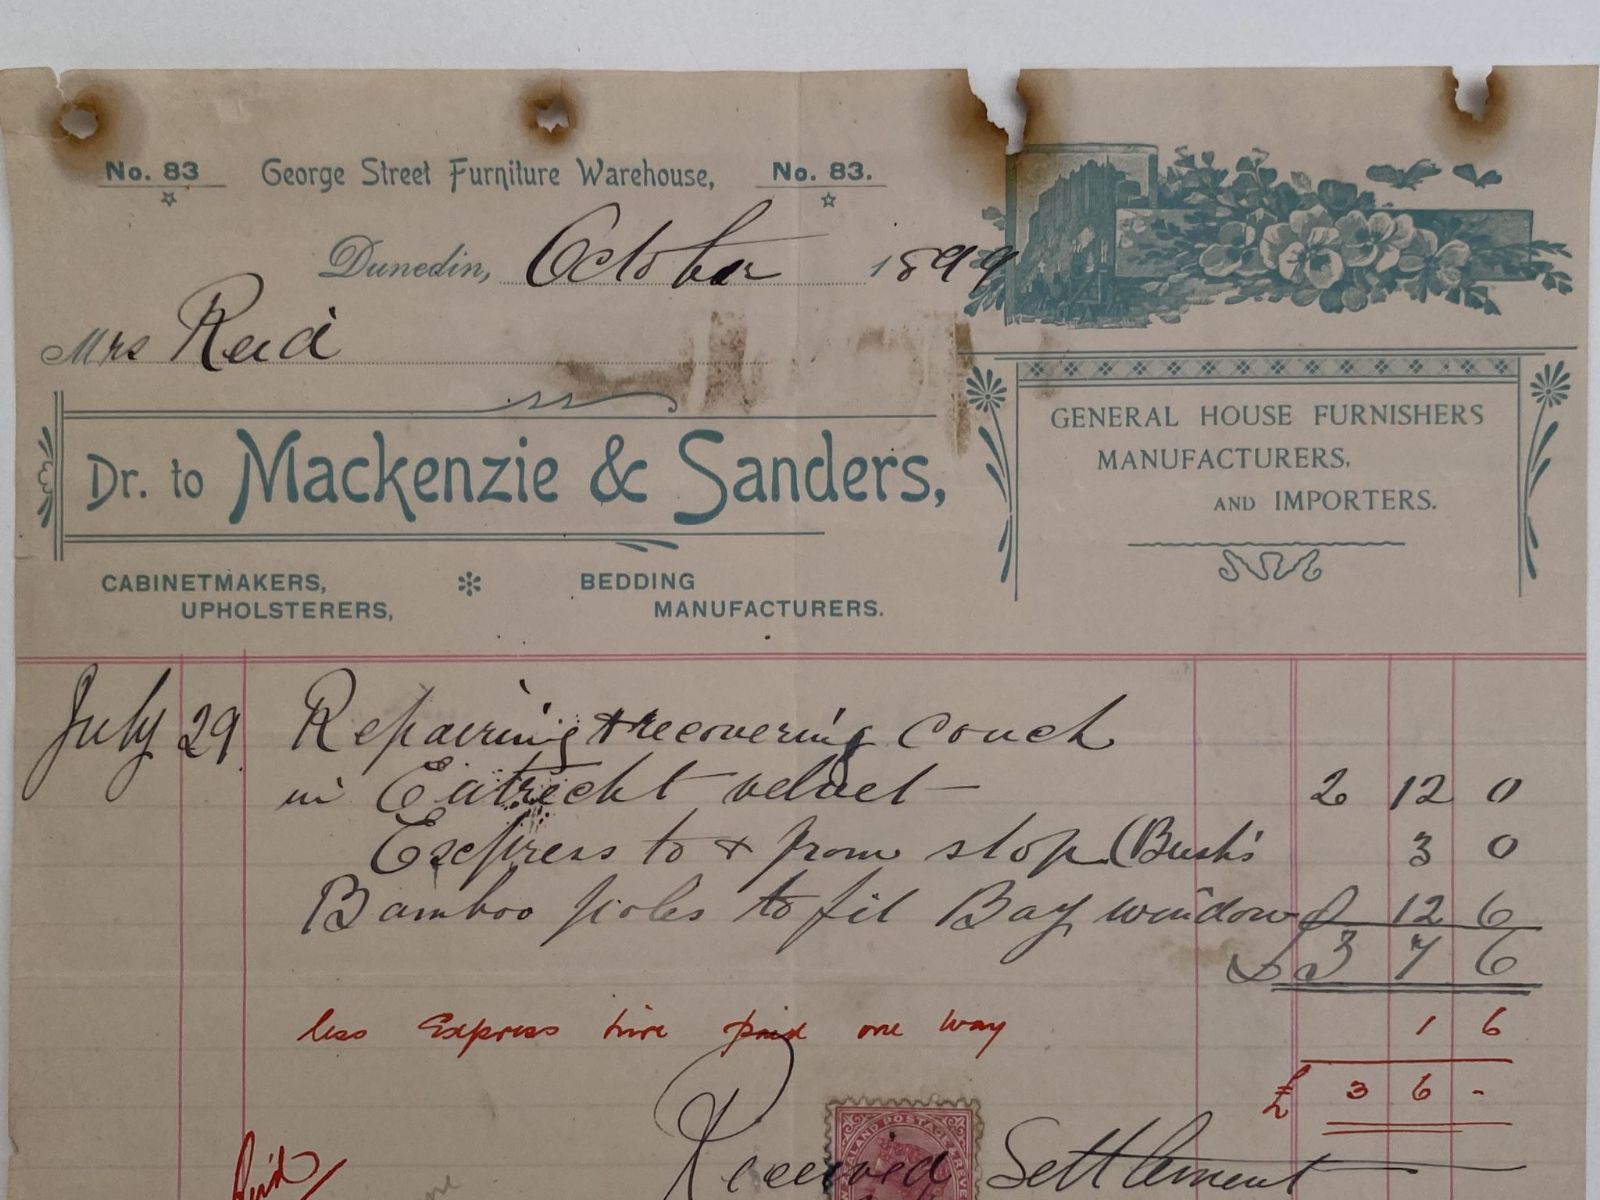 No. 83 George Street Furniture Warehouse, No. 83.
Dunedin, October 1899
Mrs Reid
Dr. to Mackenzie & Sanders,
GENERAL HOUSE FURNISHERS
MANUFACTURERS,
AND IMPORTERS.
CABINETMAKERS,
UPHOLSTERERS,
BEDDING
MANUFACTURERS.
July 29 Repairing & recovering couch
in Eutrecht velvet — 2 12 0
Express to & from shop (Bush's 3 0
Bamboo poles to fit Bay window 12 6
£ 3 7 6
less Express hire paid one way 1 6
£ 3 6 -
Received Settlement
ZEALAND POSTAGE & REVE
Paid